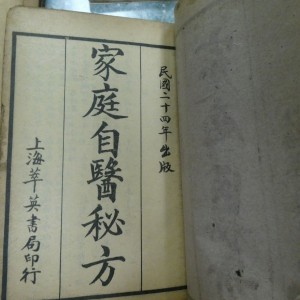 民國二十四年出版
家庭自醫秘方
上海萃英書局印行